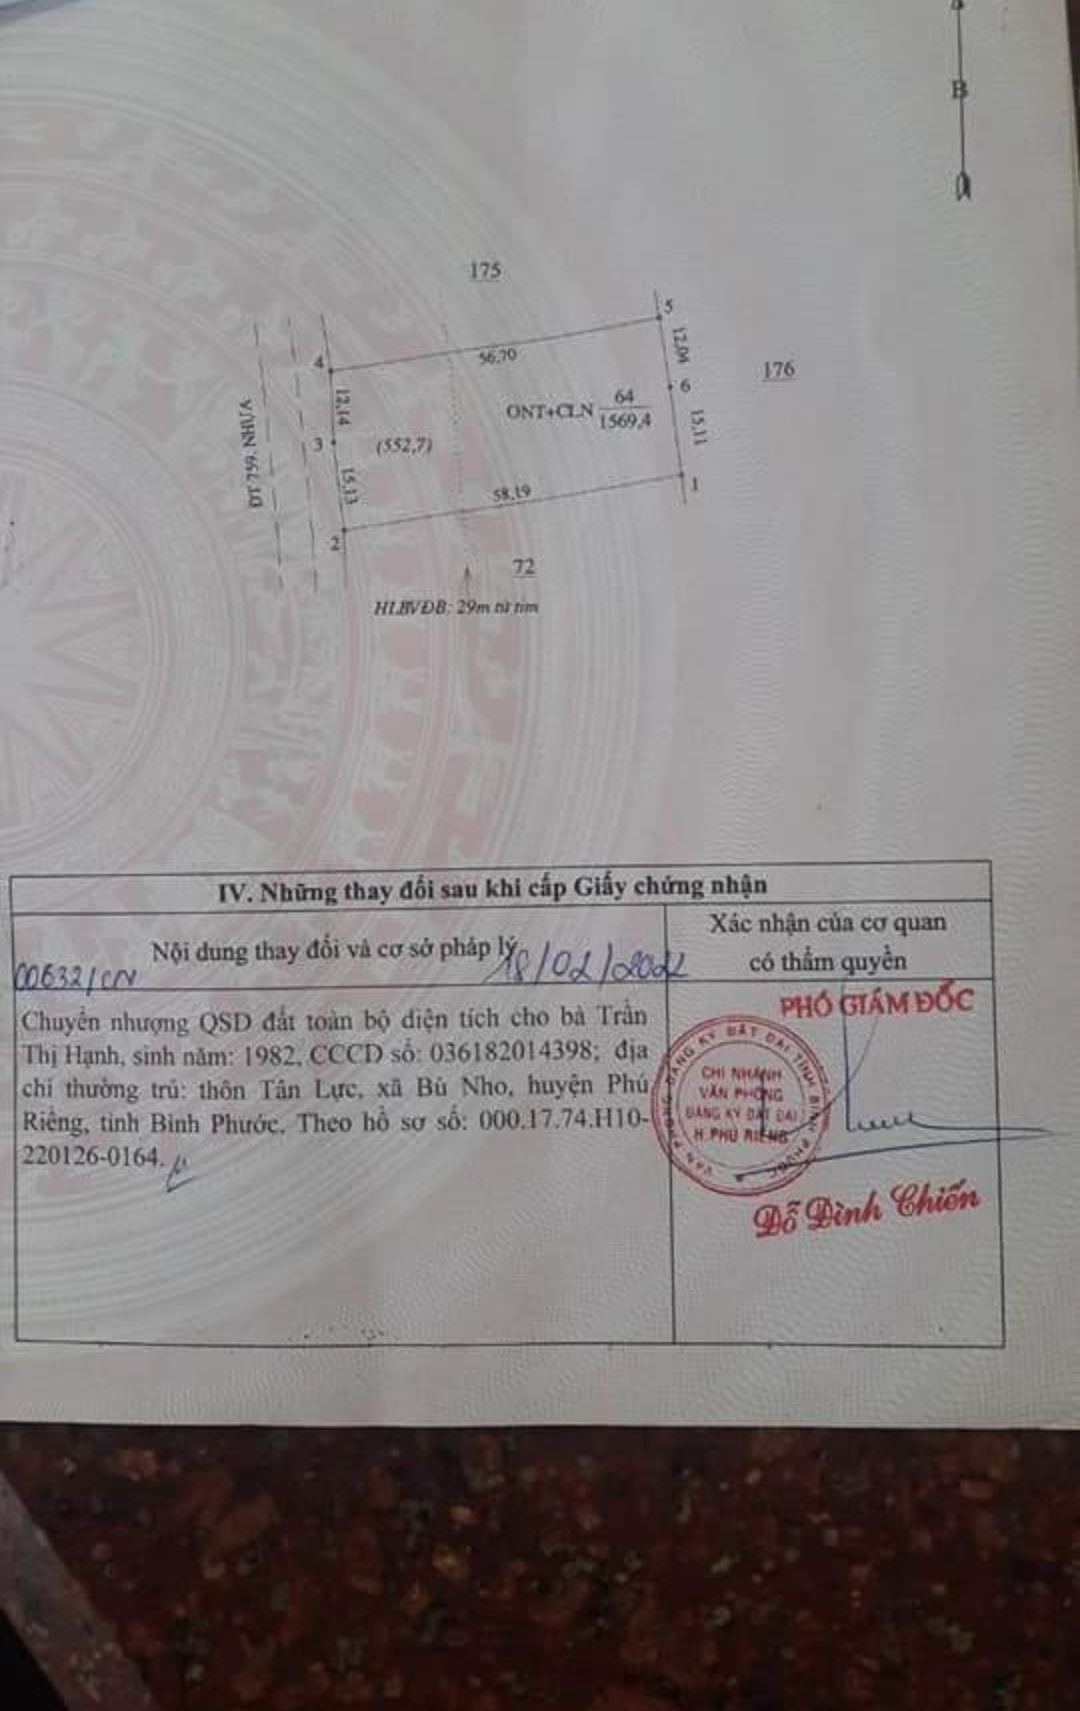 B
175
5
4
56,70
12,04
176
6
ONT+CLN 64
1569,4
12,14
ĐT 759. NHỰA
3
(552,7)
15,11
15,13
58,19
1
2
72
HLBVĐB: 29m từ tim
IV. Những thay đổi sau khi cấp Giấy chứng nhận
Nội dung thay đổi và cơ sở pháp lý
Xác nhận của cơ quan
có thẩm quyền
00632/CN
18/02/2022
Chuyển nhượng QSD đất toàn bộ diện tích cho bà Trần
Thị Hạnh, sinh năm: 1982, CCCD số: 036182014398; địa
chỉ thường trú: thôn Tân Lực, xã Bù Nho, huyện Phú
Riềng, tỉnh Bình Phước. Theo hồ sơ số: 000.17.74.H10-
220126-0164.
PHÓ GIÁM ĐỐC
VĂN PHÒNG ĐĂNG KÝ ĐẤT ĐAI TỈNH BÌNH PHƯỚC
CHI NHÁNH
VĂN PHÒNG
ĐĂNG KÝ ĐẤT ĐAI
H.PHÚ RIỀNG
Đỗ Đình Chiến